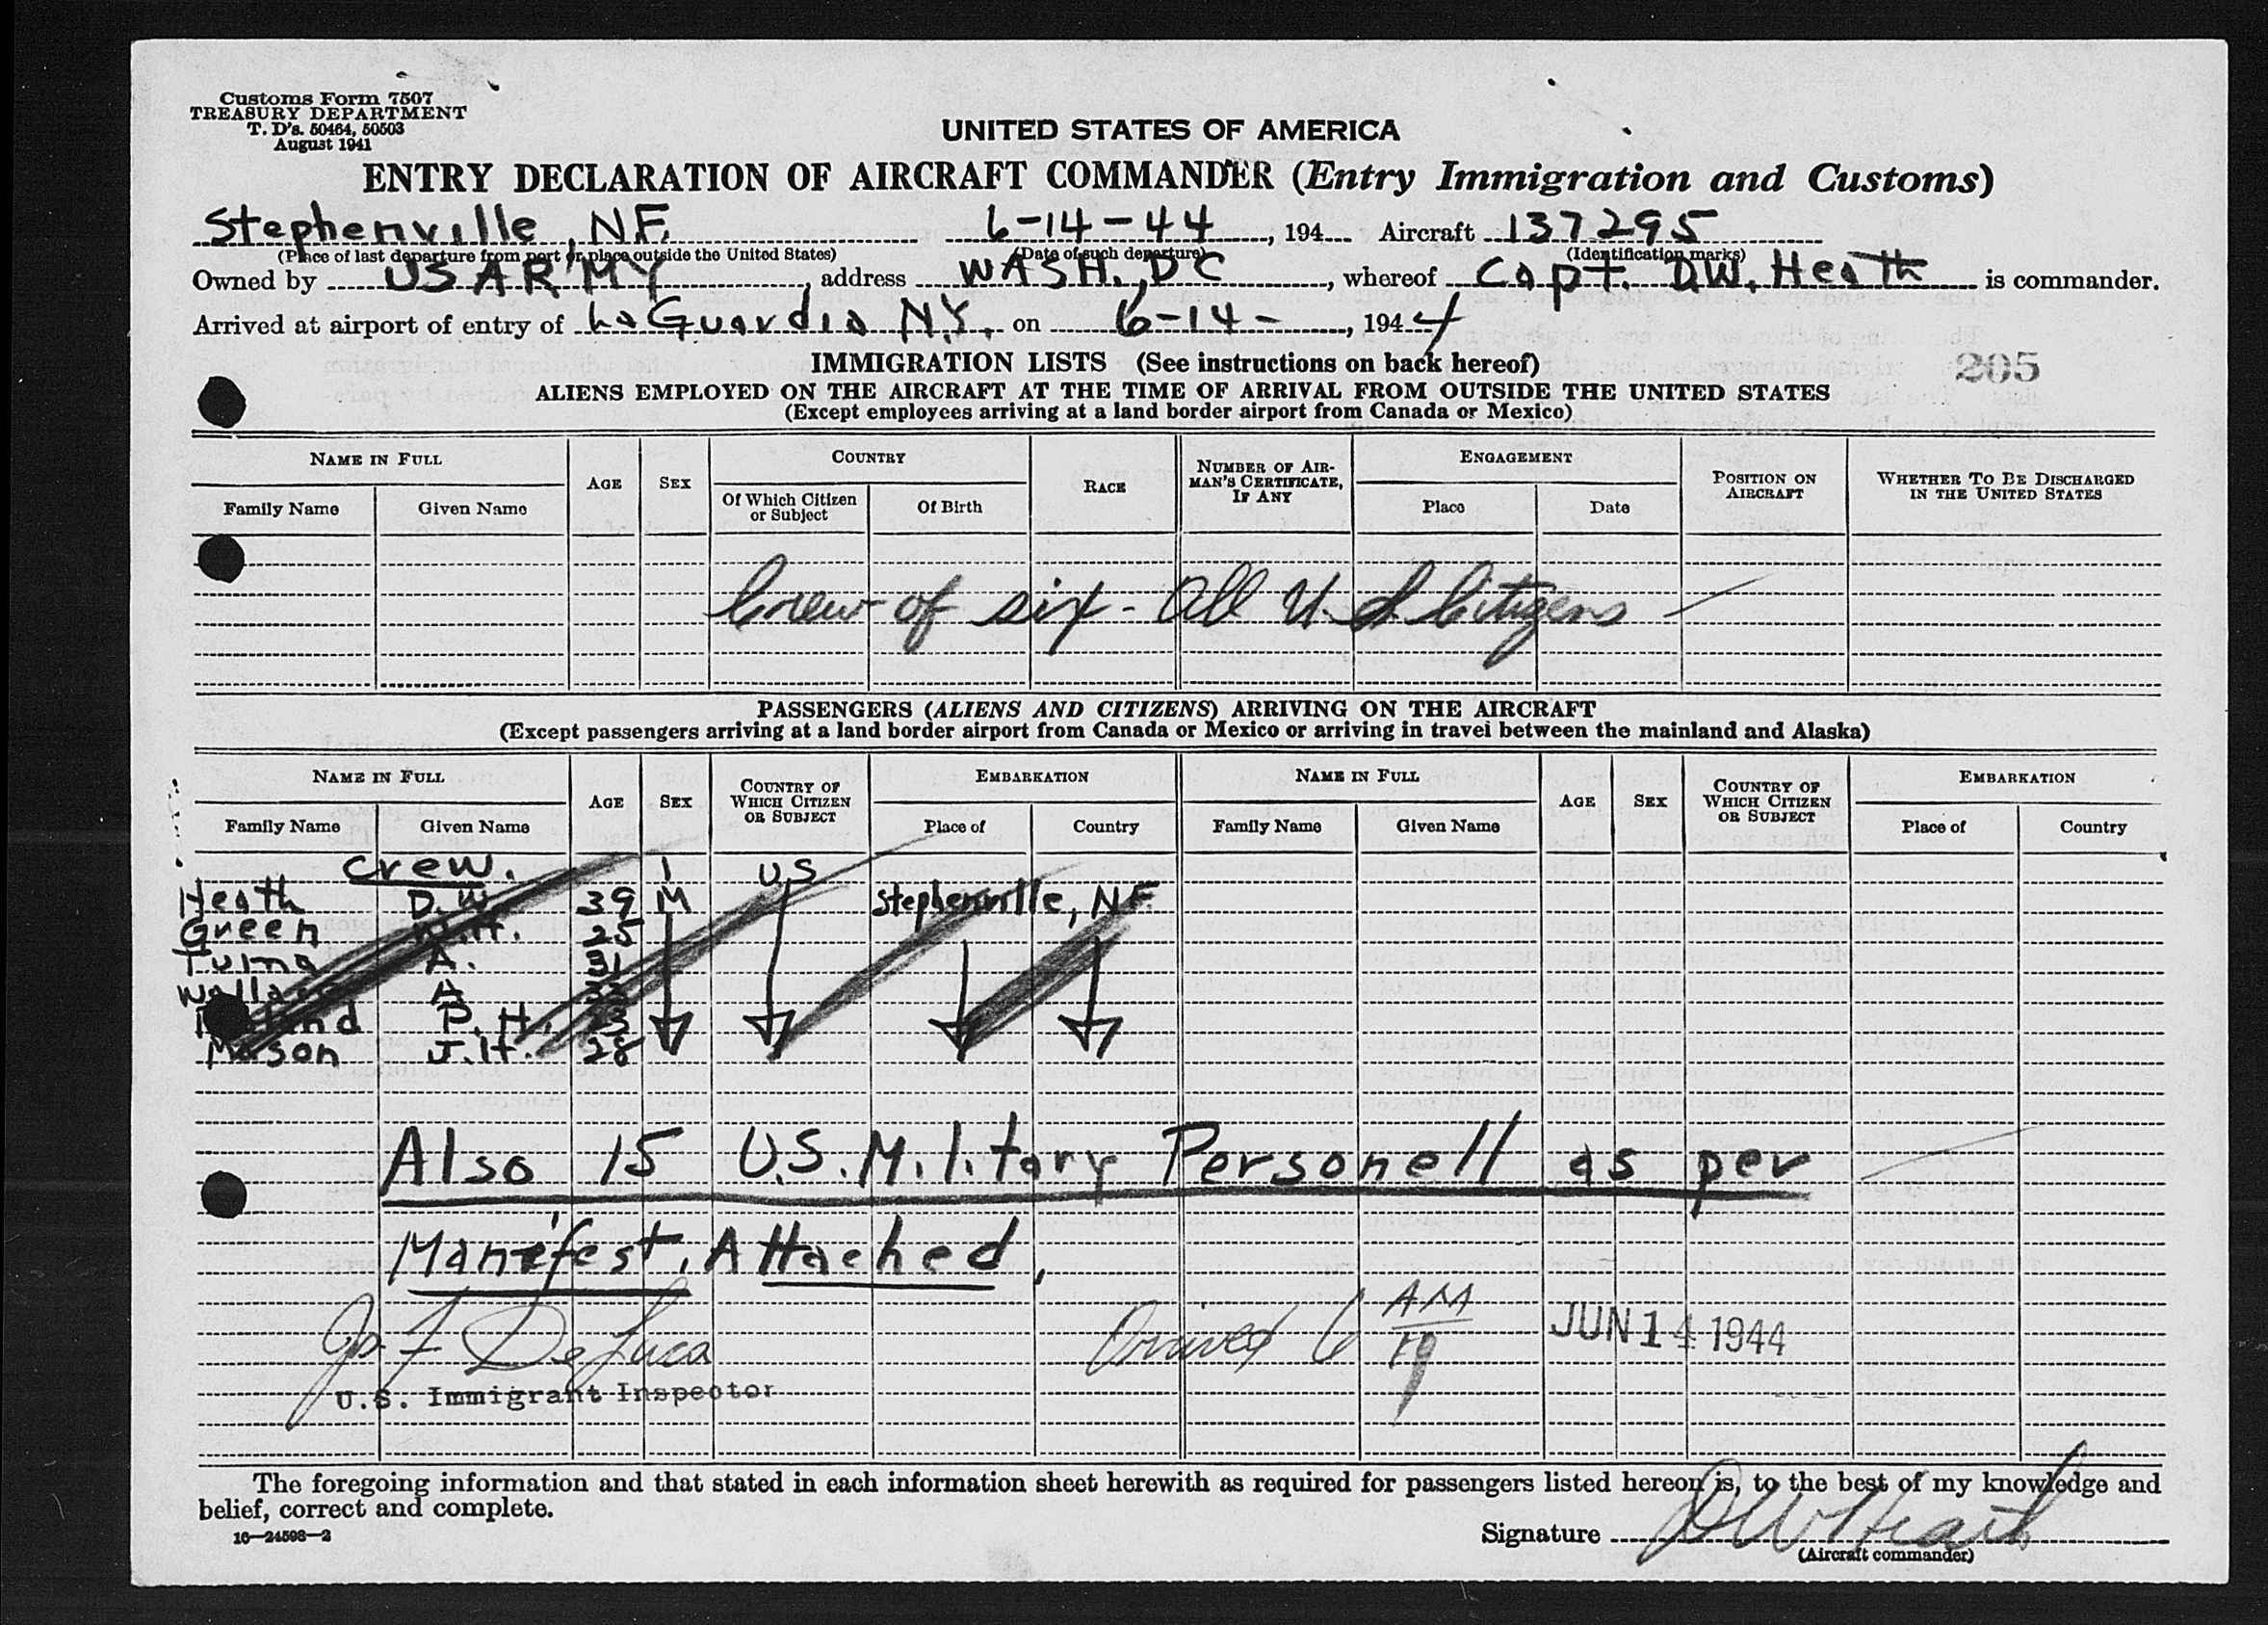 Customs Form 7507
TREASURY DEPARTMENT
T. D's. 50464, 50503
August 1941
UNITED STATES OF AMERICA
ENTRY DECLARATION OF AIRCRAFT COMMANDER (Entry Immigration and Customs)
Stephenville, N.F. 6-14-44, 194 Aircraft 137295
(Place of last departure from port or place outside the United States) (Date of such departure) (Identification marks)
Owned by US ARMY, address WASH., DC, whereof Capt. D.W. Heath is commander.
Arrived at airport of entry of LaGuardia N.Y. on 6-14-, 1944
IMMIGRATION LISTS (See instructions on back hereof)
205
ALIENS EMPLOYED ON THE AIRCRAFT AT THE TIME OF ARRIVAL FROM OUTSIDE THE UNITED STATES
(Except employees arriving at a land border airport from Canada or Mexico)
NAME IN FULL AGE SEX COUNTRY RACE NUMBER OF AIRMAN'S CERTIFICATE, IF ANY ENGAGEMENT POSITION ON AIRCRAFT WHETHER TO BE DISCHARGED IN THE UNITED STATES
Family Name Given Name Of Which Citizen or Subject Of Birth Place Date
Crew of six - All U.S Citizens
PASSENGERS (ALIENS AND CITIZENS) ARRIVING ON THE AIRCRAFT
(Except passengers arriving at a land border airport from Canada or Mexico or arriving in travel between the mainland and Alaska)
NAME IN FULL AGE SEX COUNTRY OF WHICH CITIZEN OR SUBJECT EMBARKATION NAME IN FULL AGE SEX COUNTRY OF WHICH CITIZEN OR SUBJECT EMBARKATION
Family Name Given Name Place of Country Family Name Given Name Place of Country
Crew. US
Heath D.W. 39 M Stephenville, N.F.
Green 25
A. 31
A
P. H.
Mason J.H. 28
Also 15 U.S. Military Personell as per
Manifest, Attached,
Jo F DeLuca Arrived 6 AM JUN 14 1944
U.S. Immigrant Inspector
The foregoing information and that stated in each information sheet herewith as required for passengers listed hereon is, to the best of my knowledge and
belief, correct and complete.
16—24598—2
Signature D W Heath
(Aircraft commander)